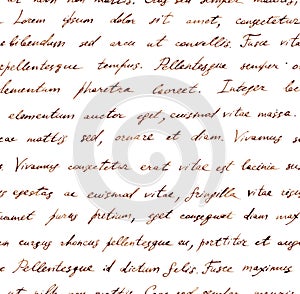 Lorem ipsum dolor sit amet, consectetur
bibendum sed arcu ut convallis. Fusce vita
pellentesque tempus. Pellentesque semper
elementum pharetra laoreet. Integer lac
elementum auctor eget, euismod vitae massa.
mattis sed, ornare et diam. Vivamus su
s. Vivamus consectetur erat vitae est lacinia su
egestas ac euismod vitae, fringilla vitae risus
purus pretium, eget consequat diam max
cursus rhoncus pellentesque eu, porttitor et augu
Pellentesque id dictum felis. Fusce maximus